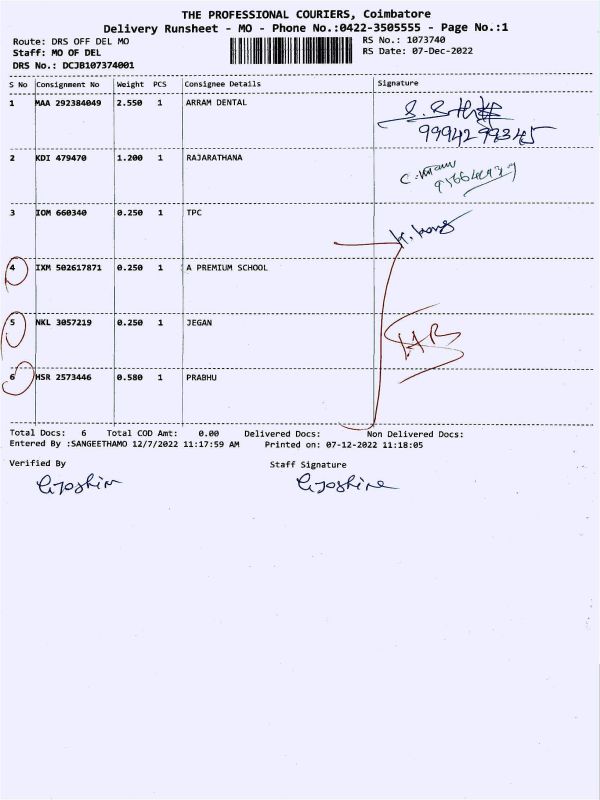 THE PROFESSIONAL COURIERS, Coimbatore
Delivery Runsheet - MO - Phone No.:0422-3505555 - Page No.:1
Route: DRS OFF DEL MO RS No.: 1073740
Staff: MO OF DEL RS Date: 07-Dec-2022
DRS No.: DCJB107374001
S No Consignment No Weight PCS Consignee Details Signature
1 MAA 292384049 2.550 1 ARRAM DENTAL
2 KDI 479470 1.200 1 RAJARATHANA
3 IOM 660340 0.250 1 TPC
4 IXM 502617871 0.250 1 A PREMIUM SCHOOL
5 NKL 3057219 0.250 1 JEGAN
6 HSR 2573446 0.580 1 PRABHU
Total Docs: 6 Total COD Amt: 0.00 Delivered Docs: Non Delivered Docs:
Entered By :SANGEETHAMO 12/7/2022 11:17:59 AM Printed on: 07-12-2022 11:18:05
Verified By Staff Signature